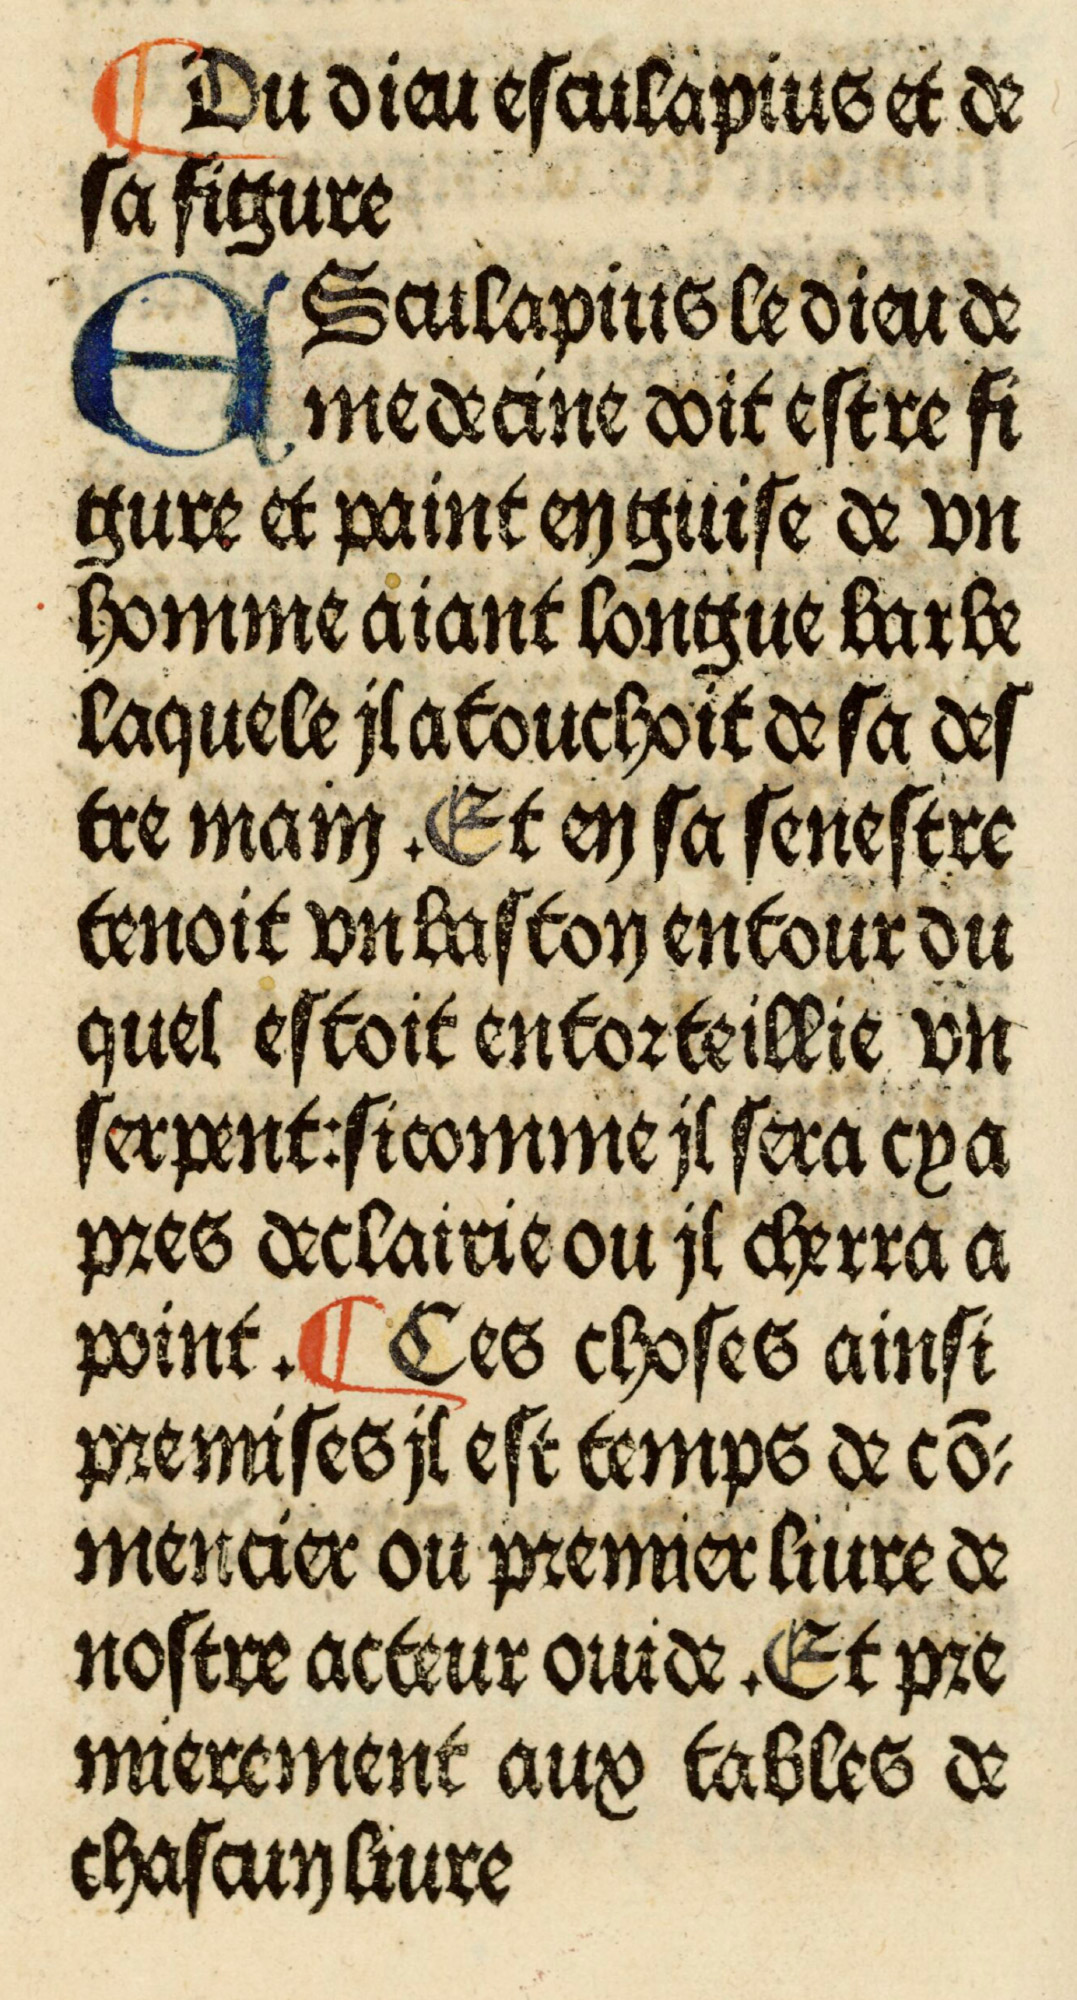 ¶ Du dieu esculapius et de
sa figure
ESculapius le dieu de
medecine doit estre fi
gure et paint en guise de vn
homme aiant longue barbe
laquele jl atouchoit de sa des
tre main . Et en sa senestre
tenoit vn baston entour du
quel estoit entorteillie vn
serpent: sicomme jl sera cy a
pres declairie ou jl cherra a
point . ¶ Ces choses ainsi
premises jl est temps de cō⸗
mencier ou premier liure de
nostre acteur ouide . Et pre
mierement aux tables de
chascun liure